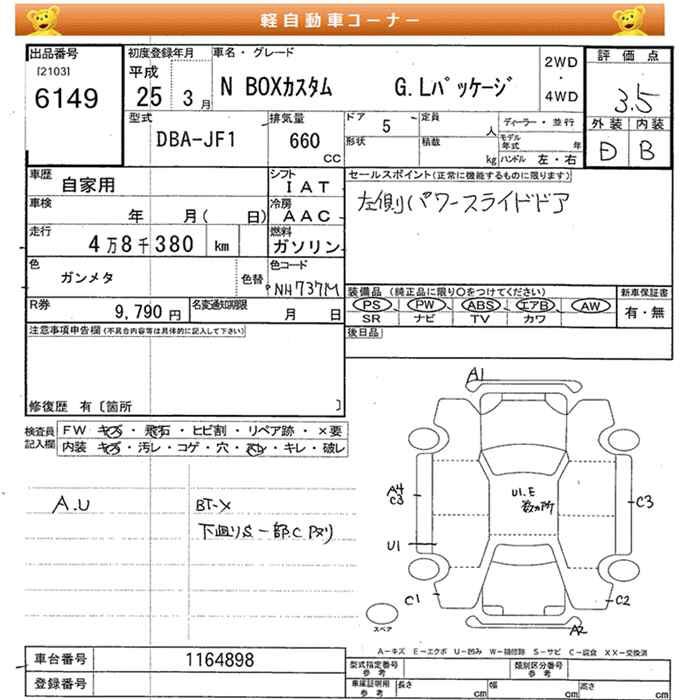 軽自動車コーナー
出品番号
[2103]
6149
初度登録年月
平成
25 3 月
車名・グレード
N BOXカスタム G.Lパッケージ
2WD
・
4WD
評価点
3.5
外装 内装
D B
型式
DBA-JF1
排気量
660
CC
ドア 5
形状
定員 人
積載 kg
ディーラー・並行
モデル年式 年
ハンドル 左・右
車歴
自家用
シフト
IAT
車検 年 月( 日)
冷房
AAC
走行
4万8千380 km
燃料
ガソリン
色
ガンメタ
色替
色コード
NH737M
R券
9,790 円
名変通知期限
月 日
セールスポイント(正常に機能するものに限ります)
左側パワースライドドア
装備品(純正品に限り○をつけてください)
PS PW ABS エアB AW
SR ナビ TV カワ
新車保証書
有・無
後日品
注意事項申告欄(不具合内容等は具体的に記入して下さい)
修復歴 有〔箇所 〕
検査員
記入欄
FW キズ・飛石・ヒビ割・リペア跡・×要
内装 キズ・汚レ・コゲ・穴・・キレ・破レ
A.U
BT-X
下廻りS一部C
A1
A4
C3
U1
C1
U1.E
数カ所
C3
C2
A2
スペア
A－キズ E－エクボ U－凹み W－補修跡 S－サビ C－腐食 XX－交換済
車台番号 1164898
登録番号
型式指定番号
参考
類別区分番号
参考
車庫証明用
参考
長さ cm
幅 cm
高さ cm